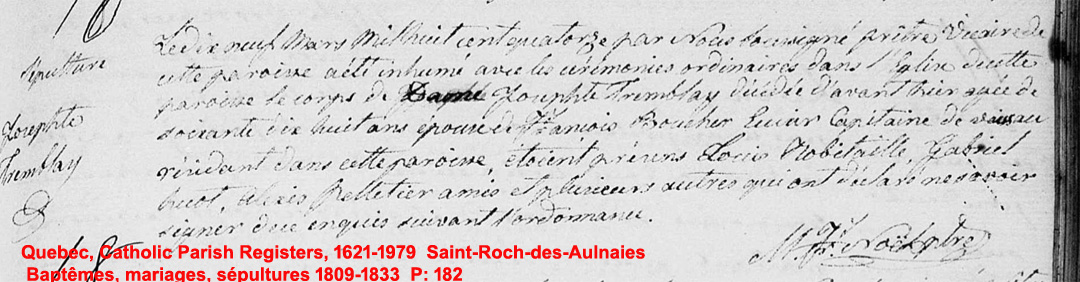 Sépulture
Josephte
Tremblay
Le dix neuf Mars Mil huit cent quatorze par Nous Soussigné prêtre Vicaire de
cette paroisse a été inhumé avec les cérémonies ordinaires dans l'Eglise de cette
paroisse le corps de Dame Josephte Tremblay décédée d'avant hier agée de
soixante dix huit ans epouse de François Boucher Ecuier Capitaine de vaisseau
résidant dans cette paroisse, étoient présens Louis Robetaille, Gabriel
huot, Alexis Pelletier amis et plusieurs autres qui ont déclaré ne savoir
signer de ce enquis suivant l'ordonnance.
Noël ptre
Quebec, Catholic Parish Registers, 1621-1979 Saint-Roch-des-Aulnaies
Baptêmes, mariages, sépultures 1809-1833 P: 182